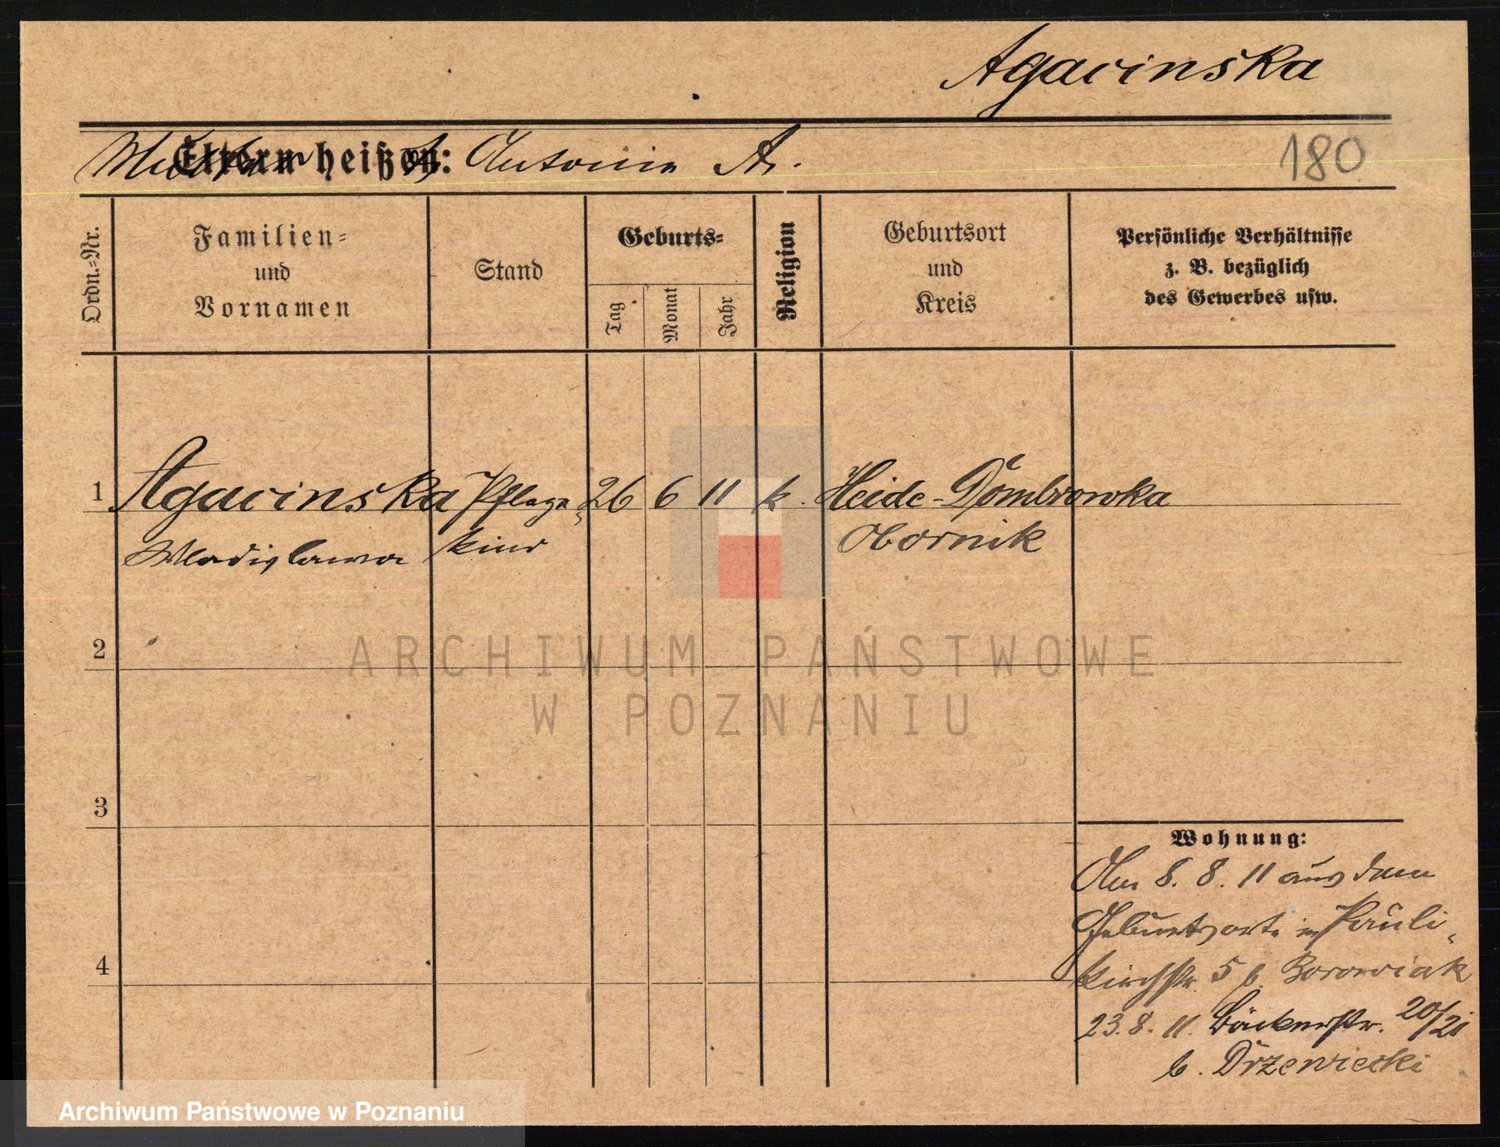 Agacinska
Eltern heißen:
Mutter Antonie A.
180
Ordn.=Nr.
Familien=
und
Vornamen
Stand
Geburts=
Tag
Monat
Jahr
Religion
Geburtsort
und
Kreis
Persönliche Verhältnisse
z. B. bezüglich
des Gewerbes usw.
1 Agacinska Pflege= 26 6 11 k. Heide-Dombrowka
Wladislawa kind Obornik
2
ARCHIWUM PAŃSTWOWE
W POZNANIU
3
Wohnung:
Am 8. 8. 11 aus dem
Geburtsorte in Pauli-
4
kirchstr. 5 b. Borowiak
23. 8. 11. Bäckerstr. 20/21
b. Drzewiecki
Archiwum Państwowe w Poznaniu